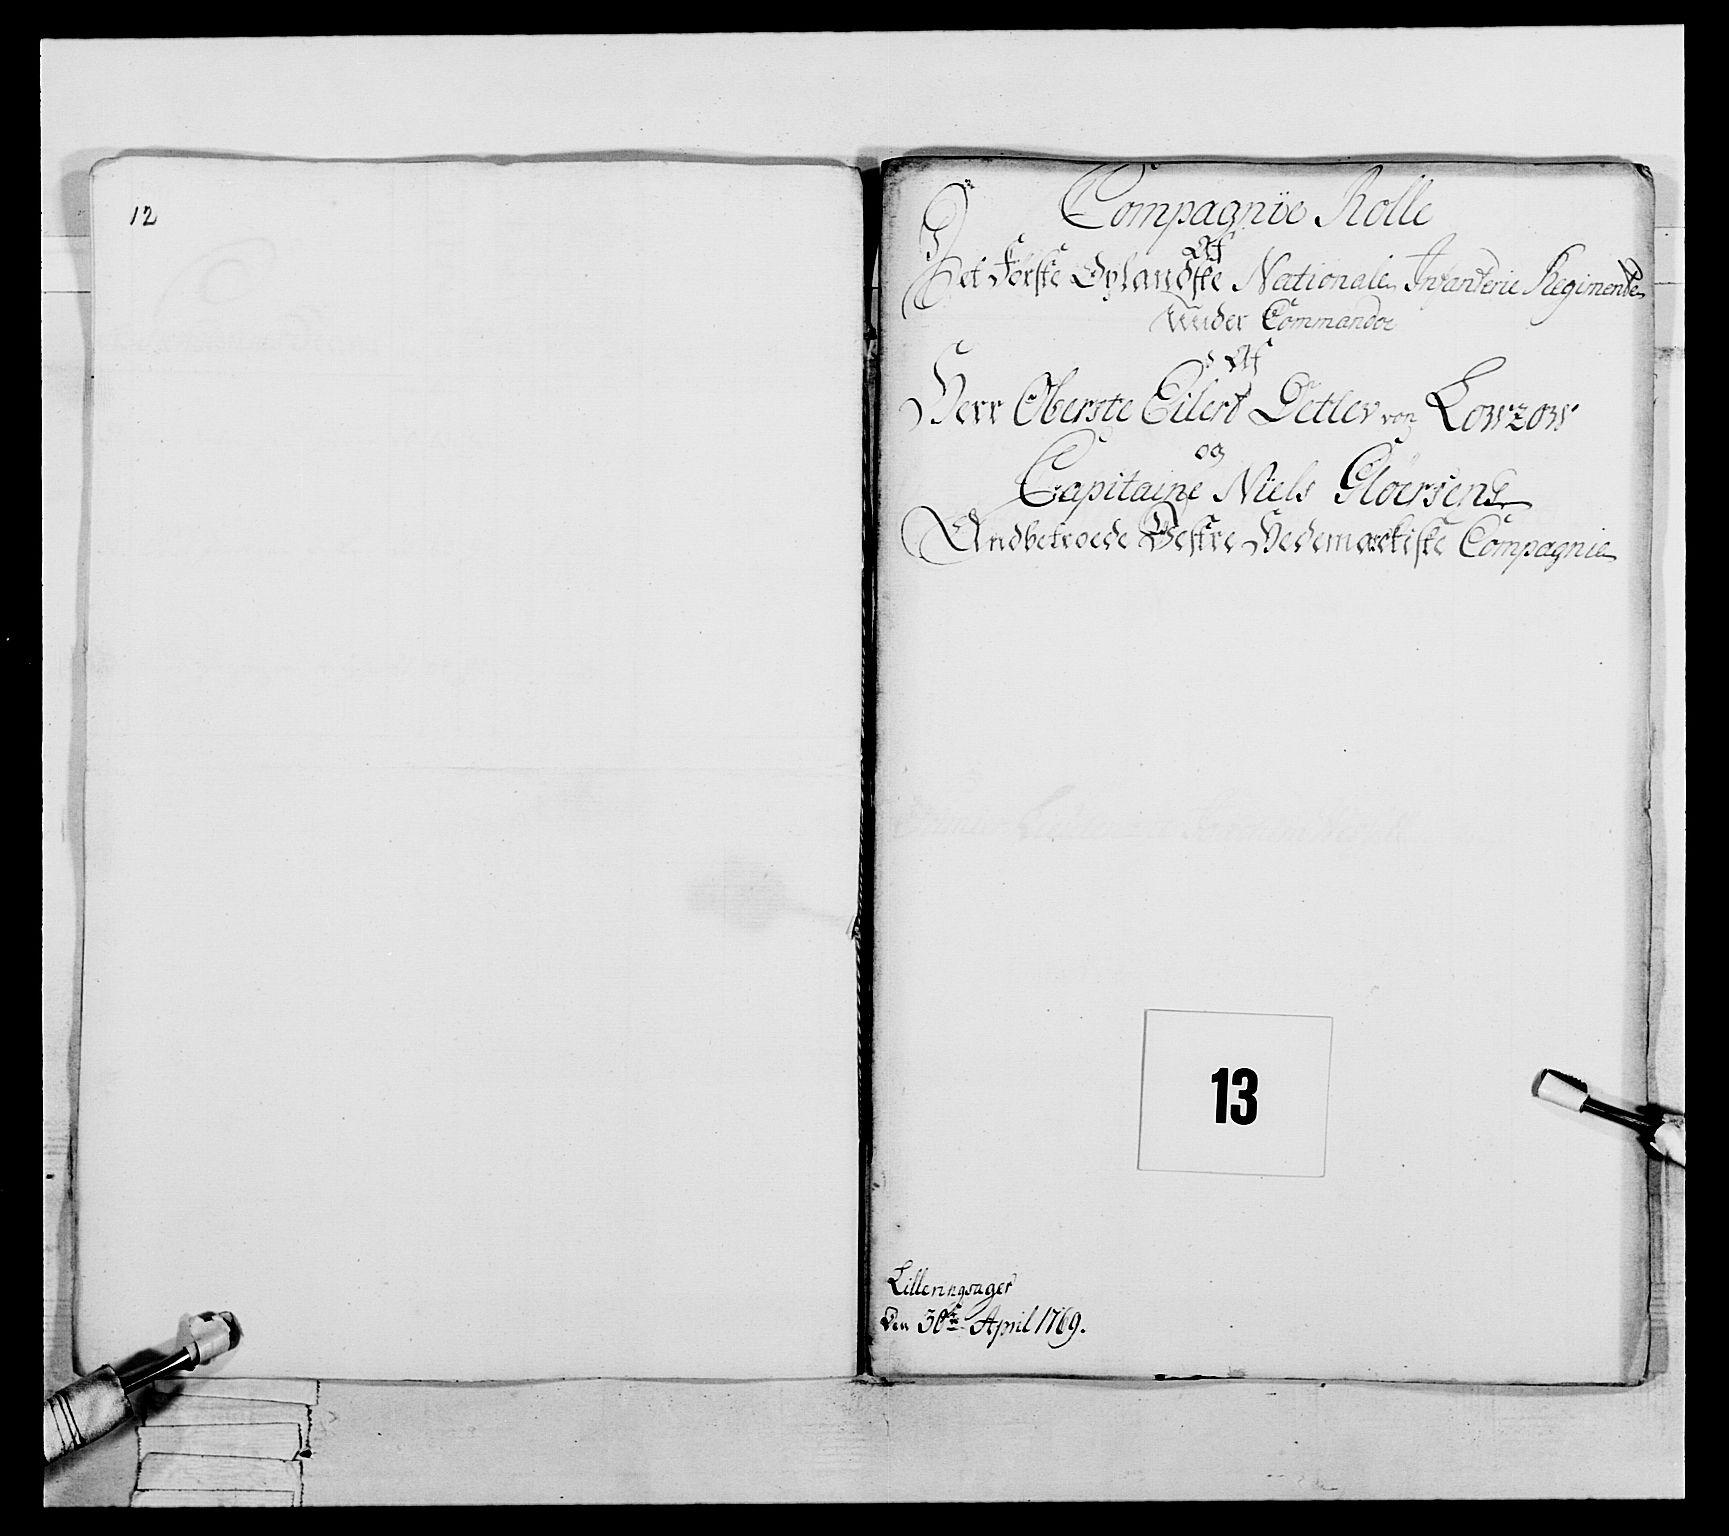 12
Compagnie Rolle
Af
Det Förste Oplandske Nationale Infanterie Regimente
Under Commando
Af
Herr Oberste Eilert Detlev von Lowzow
og
Capitaine Niels Glöersens
Andbetroede Vestre Hedemarkiske Compagnie
13
Lilleringsager
Den 30te April 1769.